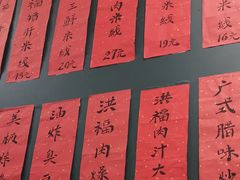 福猪肝米线
15元
三鲜米线
20元
肉米线
27元
米线
19元
米线
16元
美极炸
油炸臭豆
洪福肉燥
洪福肉汁大
广式腊味炒